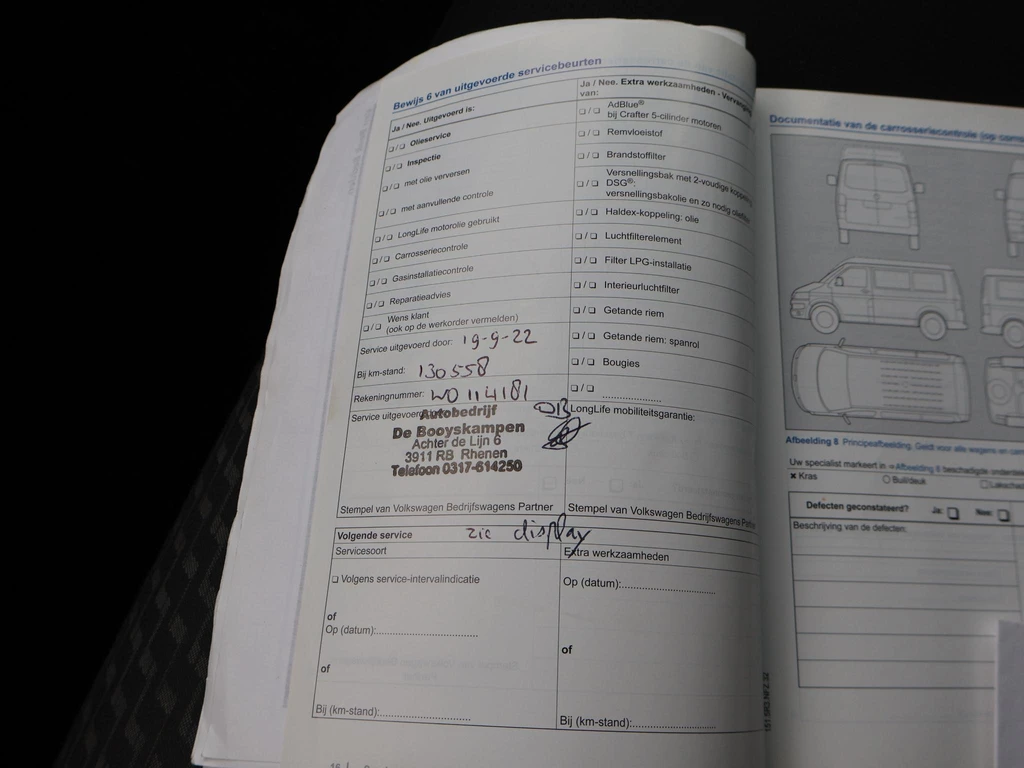 Bewijs 6 van uitgevoerde servicebeurten
Ja / Nee. Uitgevoerd is:
❏/❏ Olieservice
❏/❏ Inspectie
❏/❏ met olie verversen
❏/❏ met aanvullende controle
❏/❏ LongLife motorolie gebruikt
❏/❏ Carrosseriecontrole
❏/❏ Gasinstallatiecontrole
❏/❏ Reparatieadvies
❏/❏ Wens klant
(ook op de werkorder vermelden)
Service uitgevoerd door: 19-9-22
Bij km-stand: 130558
Rekeningnummer: WO114181
Service uitgevoerd
Autobedrijf
De Booyskampen
Achter de Lijn 6
3911 RB Rhenen
Telefoon 0317-614250
Stempel van Volkswagen Bedrijfswagens Partner
Ja / Nee. Extra werkzaamheden - Vervanging
van:
❏/❏ AdBlue®
bij Crafter 5-cilinder motoren
❏/❏ Remvloeistof
❏/❏ Brandstoffilter
Versnellingsbak met 2-voudige
❏/❏ DSG®:
versnellingsbakolie en zo nodig
❏/❏ Haldex-koppeling: olie
❏/❏ Luchtfilterelement
❏/❏ Filter LPG-installatie
❏/❏ Interieurluchtfilter
❏/❏ Getande riem
❏/❏ Getande riem: spanrol
❏/❏ Bougies
❏/❏ ....................
LongLife mobiliteitsgarantie:
Stempel van Volkswagen Bedrijfswagens
Volgende service zie display
Servicesoort
❏ Volgens service-intervalindicatie
of
Op (datum):..................................
of
Bij (km-stand):..............................
Extra werkzaamheden
Op (datum):..............................
of
Bij (km-stand):..............................
16
151.5R3.NFZ.32
Documentatie van de carrosseriecontrole
Afbeelding 8 Principeafbeelding. Geldt voor alle wagens en
Uw specialist markeert in ⇒Afbeelding 8 beschadigde
× Kras
○ Buil/deuk
Defecten geconstateerd? Ja: ❏ Nee: ❏
Beschrijving van de defecten: